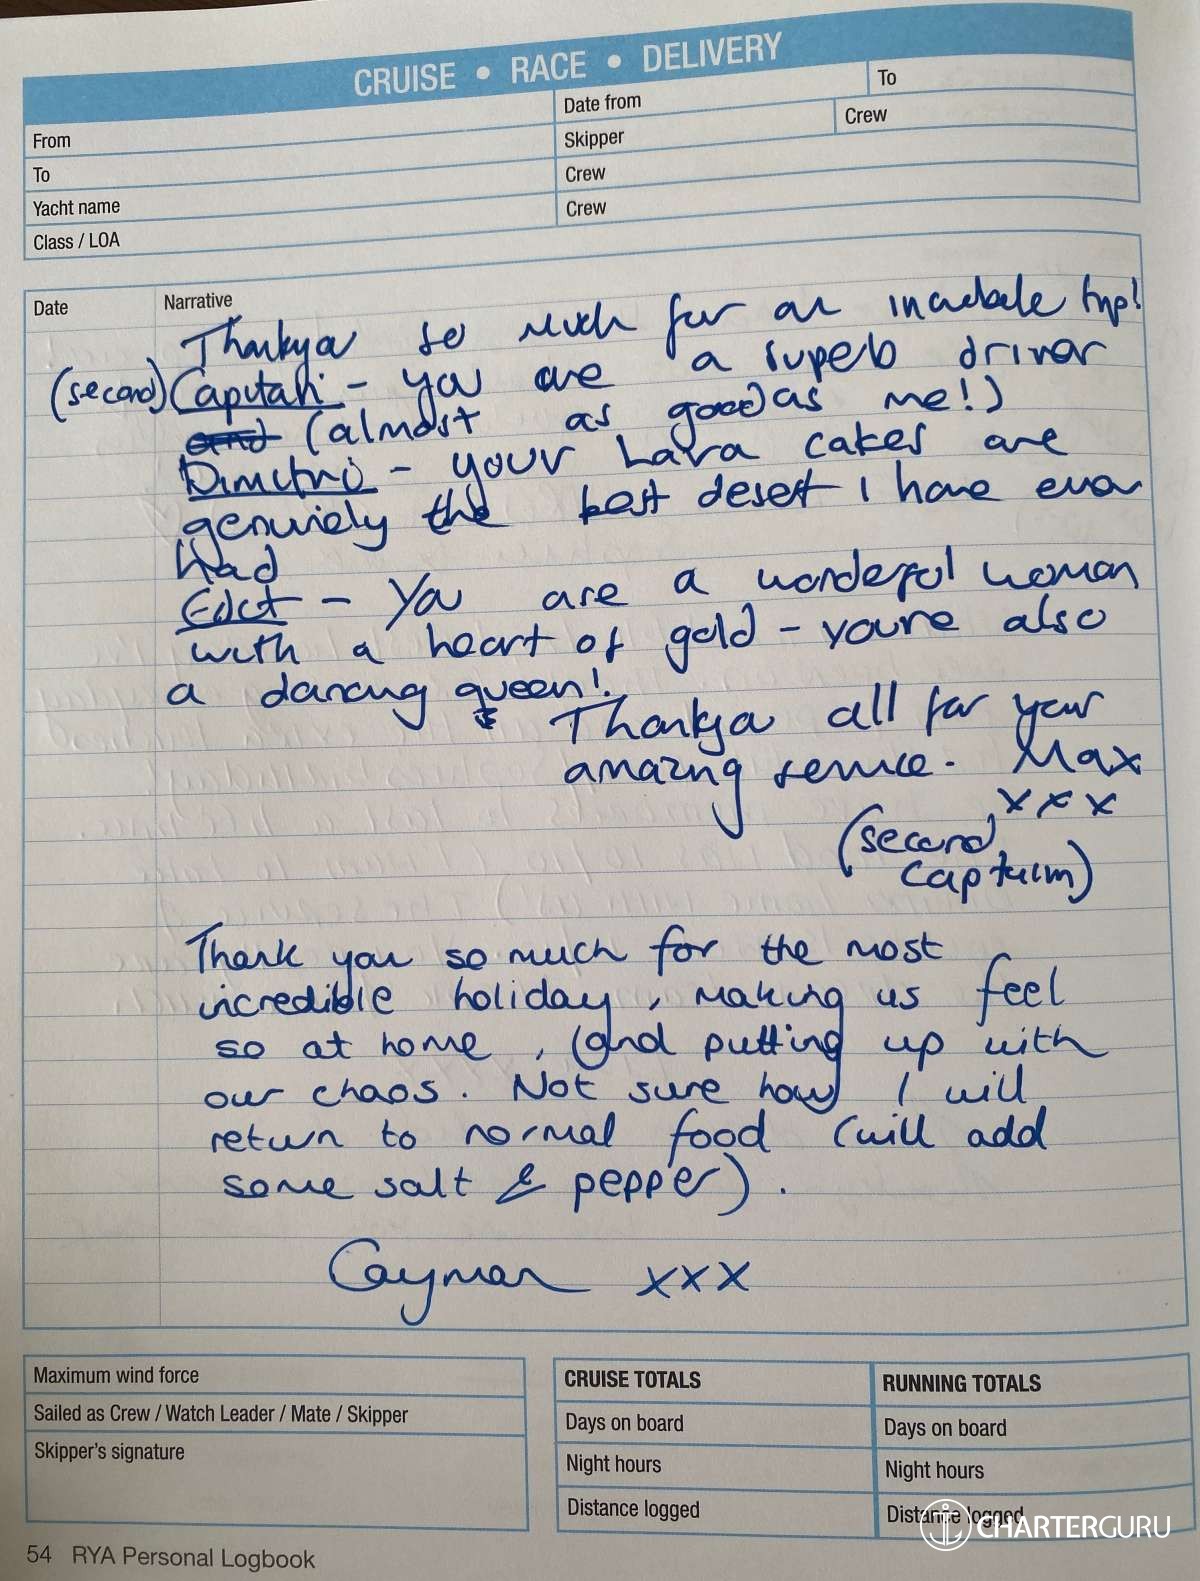 CRUISE • RACE • DELIVERY
From
Date from
To
To
Skipper
Crew
Yacht name
Crew
Class / LOA
Crew
Date
Narrative
Thankya so much for an incredible trip!
(second) Capitan - you are a superb driver
and (almost as good as me!)
Dimitrio - your Lava cakes are
genuiely the best desert I have ever
had
- You are a wonderful woman
with a heart of gold - youre also
a dancing queen!
Thankya all for your
amazing service. Max
xxx
(second
captain)
Thank you so much for the most
incredible holiday, making us feel
so at home, (and putting up with
our chaos. Not sure how I will
return to normal food (will add
some salt & pepper).
Cayman xxx
Maximum wind force
Sailed as Crew / Watch Leader / Mate / Skipper
Skipper's signature
CRUISE TOTALS
Days on board
Night hours
Distance logged
RUNNING TOTALS
Days on board
Night hours
Distance logged
CHARTERGURU
54 RYA Personal Logbook